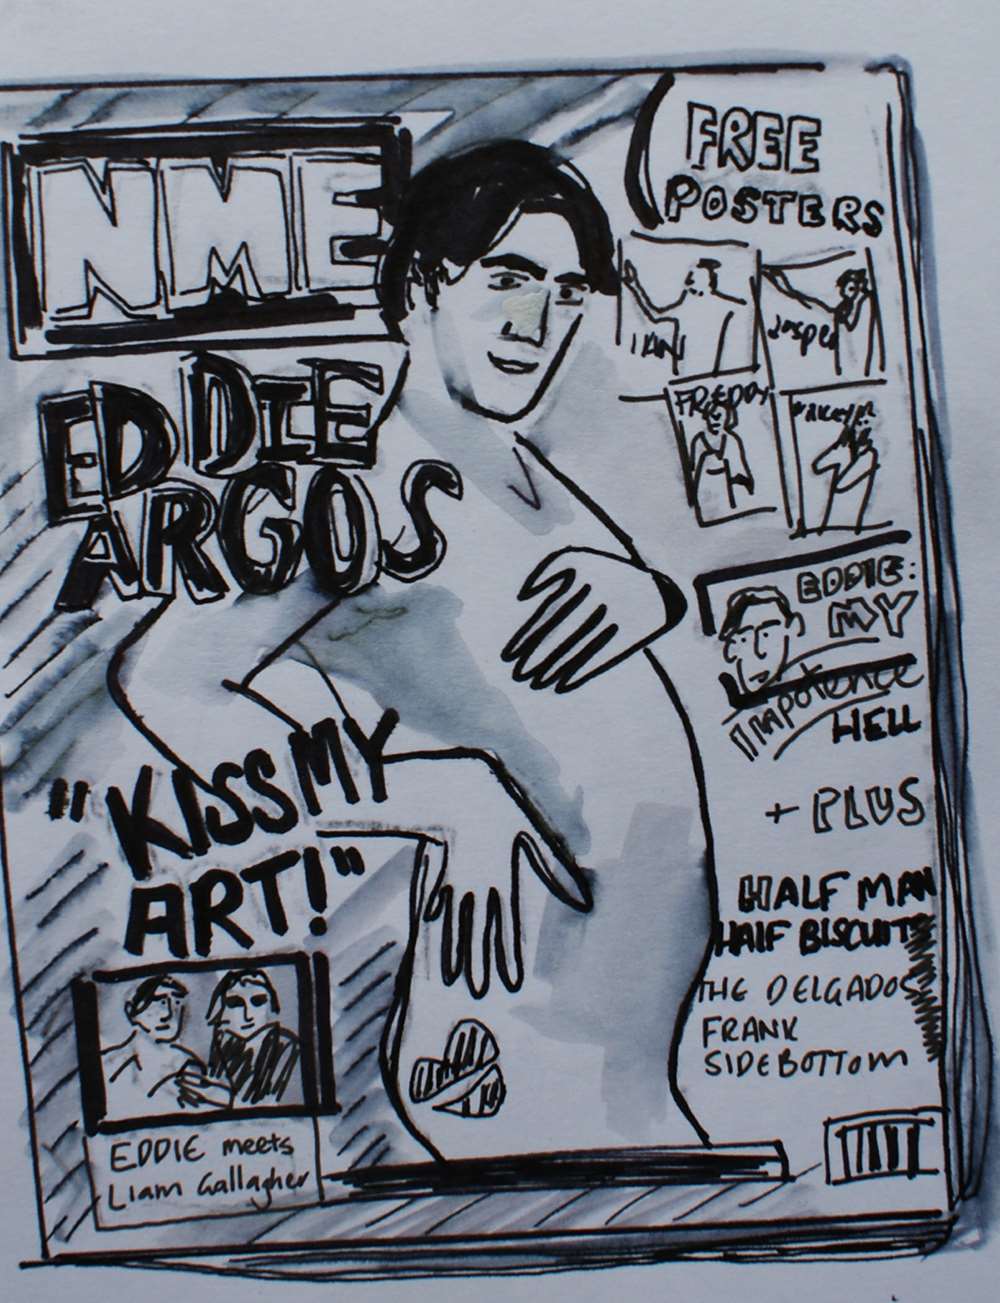 NME
FREE
POSTERS
IAN
Jasper
FREDDY
MIKEY
EDDIE
ARGOS
EDDIE:
MY
Impotence
HELL
"KISS MY
ART!"
+ PLUS
HALF MAN
HALF BISCUIT
THE DELGADOS
FRANK
SIDEBOTTOM
EDDIE meets
Liam Gallagher